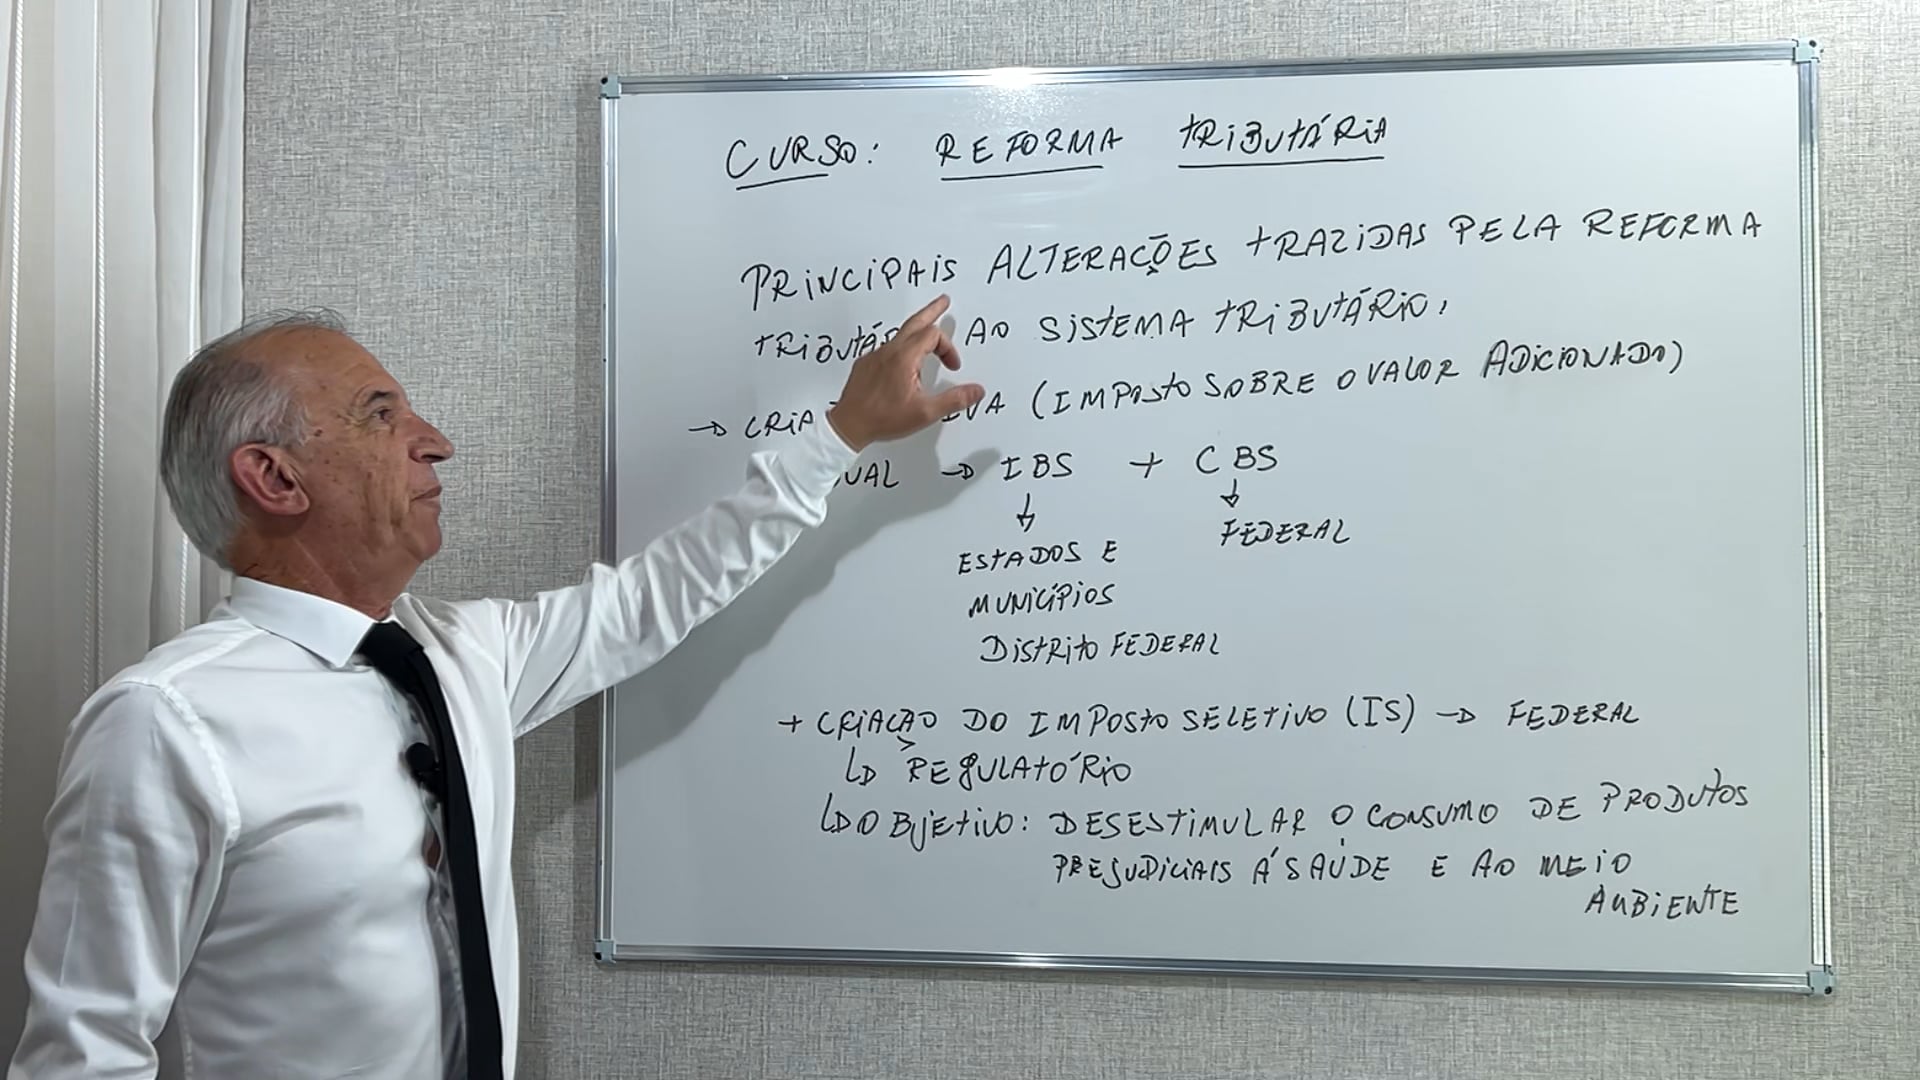 CURSO: REFORMA TRIBUTÁRIA
PRINCIPAIS ALTERAÇÕES TRAZIDAS PELA REFORMA
AO SISTEMA TRIBUTÁRIO.
→ IVA (IMPOSTO SOBRE O VALOR ADICIONADO)
→ IBS + CBS
↓ ↓
FEDERAL
ESTADOS E
MUNICÍPIOS
DISTRITO FEDERAL
+ CRIAÇAO DO IMPOSTO SELETIVO (IS) → FEDERAL
↳ REGULATÓRIO
↳ OBJETIVO: DESESTIMULAR O CONSUMO DE PRODUTOS
PREJUDICIAIS Á SAÚDE E AO MEIO
AMBIENTE